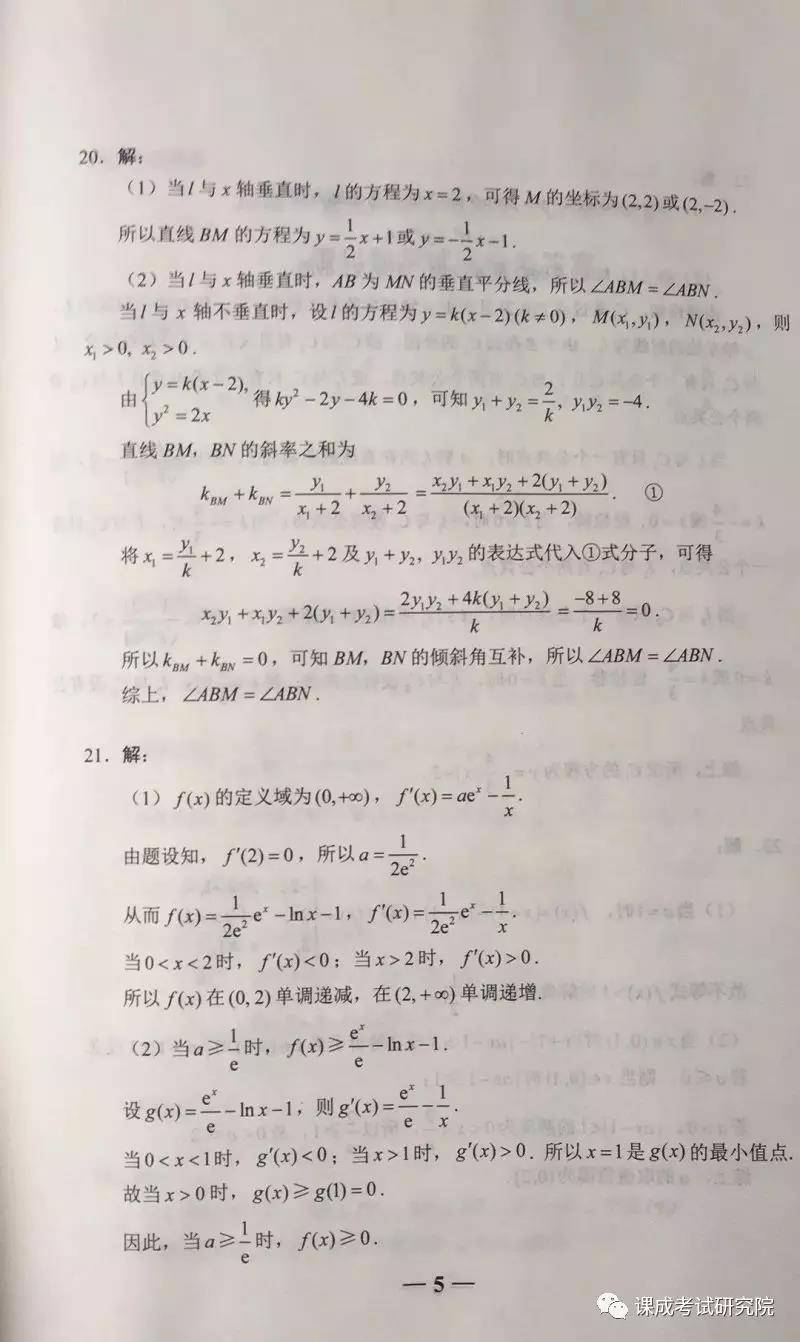 20. 解:
(1) 当 l 与 x 轴垂直时, l 的方程为 x=2, 可得 M 的坐标为 (2,2) 或 (2,−2).
所以直线 BM 的方程为 y=\frac{1}{2}x+1 或 y=−\frac{1}{2}x−1.
(2) 当 l 与 x 轴垂直时, AB 为 MN 的垂直平分线, 所以 ∠ABM=∠ABN.
当 l 与 x 轴不垂直时, 设 l 的方程为 y=k(x−2)(k≠0), M(x₁,y₁), N(x₂,y₂), 则
x₁>0, x₂>0.
由 {y=k(x−2), y²=2x 得 ky²−2y−4k=0, 可知 y₁+y₂=\frac{2}{k}, y₁y₂=−4.
直线 BM, BN 的斜率之和为
k_{BM}+k_{BN}=\frac{y₁}{x₁+2}+\frac{y₂}{x₂+2}=\frac{x₂y₁+x₁y₂+2(y₁+y₂)}{(x₁+2)(x₂+2)}. ①
将 x₁=\frac{y₁}{k}+2, x₂=\frac{y₂}{k}+2 及 y₁+y₂, y₁y₂ 的表达式代入①式分子, 可得
x₂y₁+x₁y₂+2(y₁+y₂)=\frac{2y₁y₂+4k(y₁+y₂)}{k}=\frac{−8+8}{k}=0.
所以 k_{BM}+k_{BN}=0, 可知 BM, BN 的倾斜角互补, 所以 ∠ABM=∠ABN.
综上, ∠ABM=∠ABN.
21. 解:
(1) f(x) 的定义域为 (0,+∞), f′(x)=ae^x−\frac{1}{x}.
由题设知, f′(2)=0, 所以 a=\frac{1}{2e²}.
从而 f(x)=\frac{1}{2e²}e^x−ln x−1, f′(x)=\frac{1}{2e²}e^x−\frac{1}{x}.
当 0<x<2 时, f′(x)<0; 当 x>2 时, f′(x)>0.
所以 f(x) 在 (0, 2) 单调递减, 在 (2,+∞) 单调递增.
(2) 当 a≥\frac{1}{e} 时, f(x)≥\frac{e^x}{e}−ln x−1.
设 g(x)=\frac{e^x}{e}−ln x−1, 则 g′(x)=\frac{e^x}{e}−\frac{1}{x}.
当 0<x<1 时, g′(x)<0; 当 x>1 时, g′(x)>0. 所以 x=1 是 g(x) 的最小值点.
故当 x>0 时, g(x)≥g(1)=0.
因此, 当 a≥\frac{1}{e} 时, f(x)≥0.
— 5 —
课成考试研究院